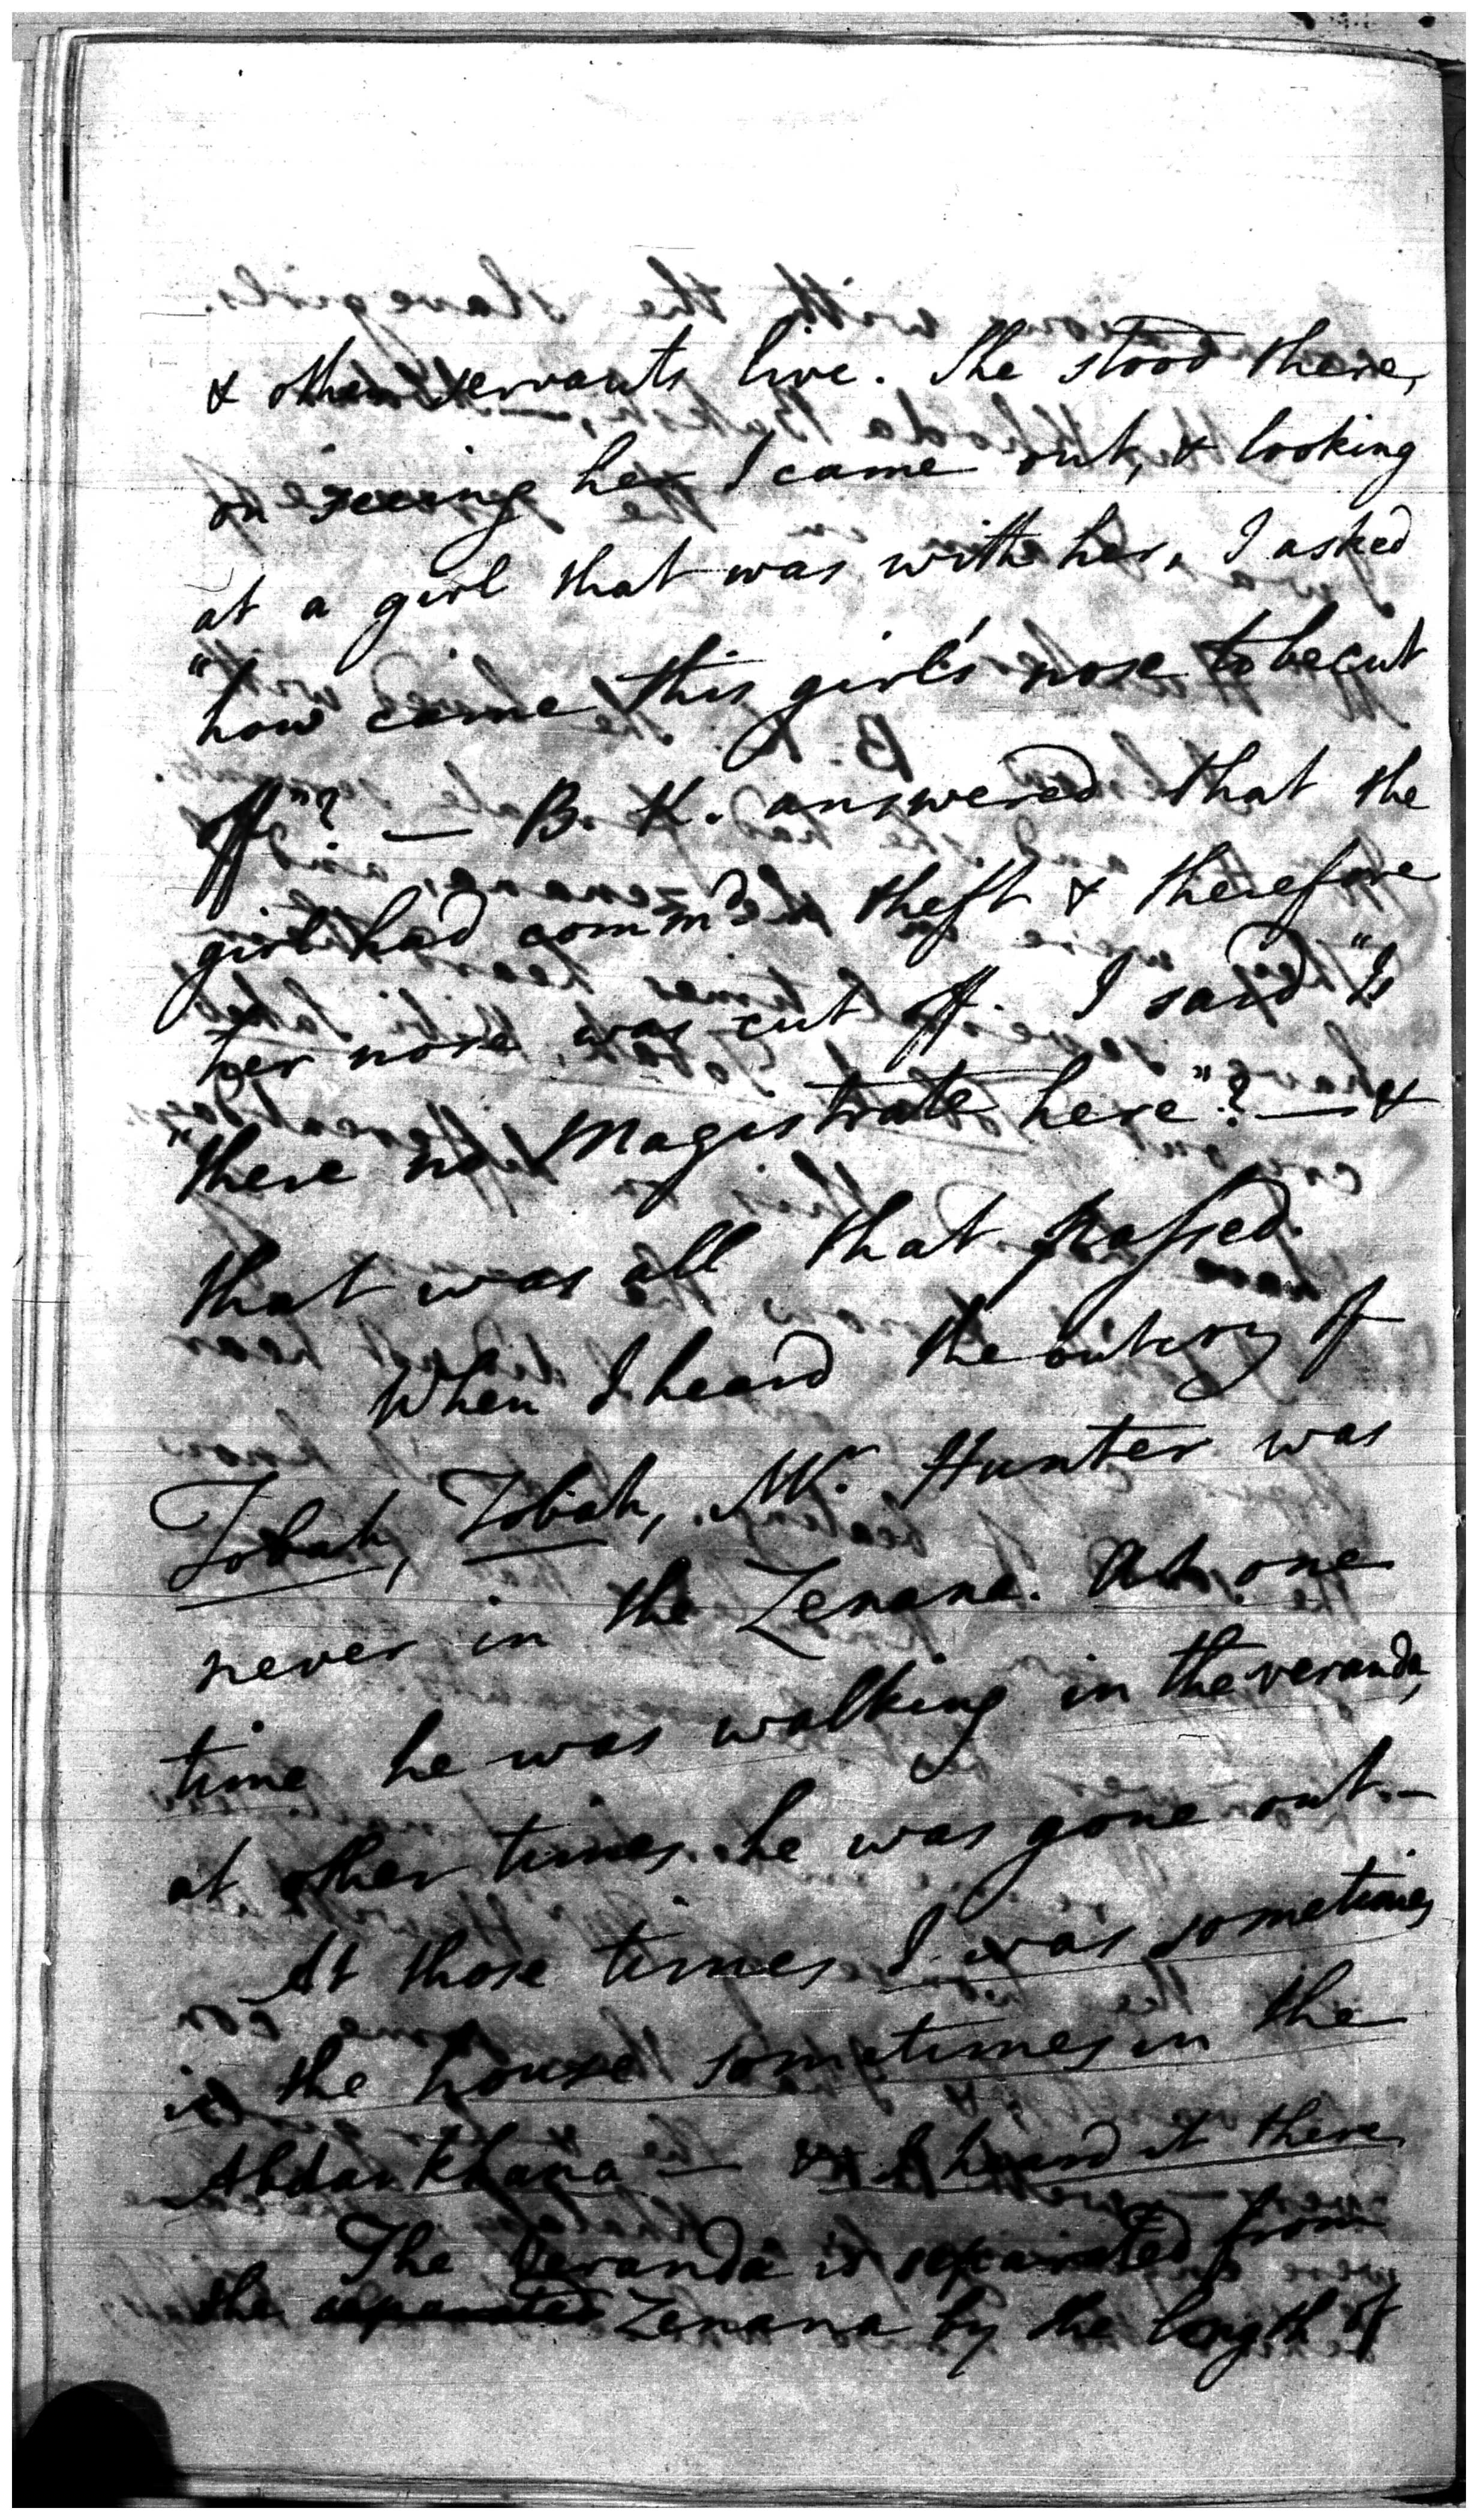 & other servants live. She stood there,
on seeing her I came out, & looking
at a girl that was with her, I asked
"how came this girl's nose to be cut
off"? — B. K. answered that the
girl had commd. theft & therefore
her nose was cut off. I said "Is
"there no Magistrate here"? — &
that was all that passed.
When I heard the outcry of
Tobah, Tobah, Mr. Hunter was
never in the Zenana. At one
time he was walking in the veranda,
at other times he was gone out —
At those times I was sometimes
in the house sometimes in the
Abdar Khana — & I heard it there
The Veranda is separated from
the separated Zenana by the length of